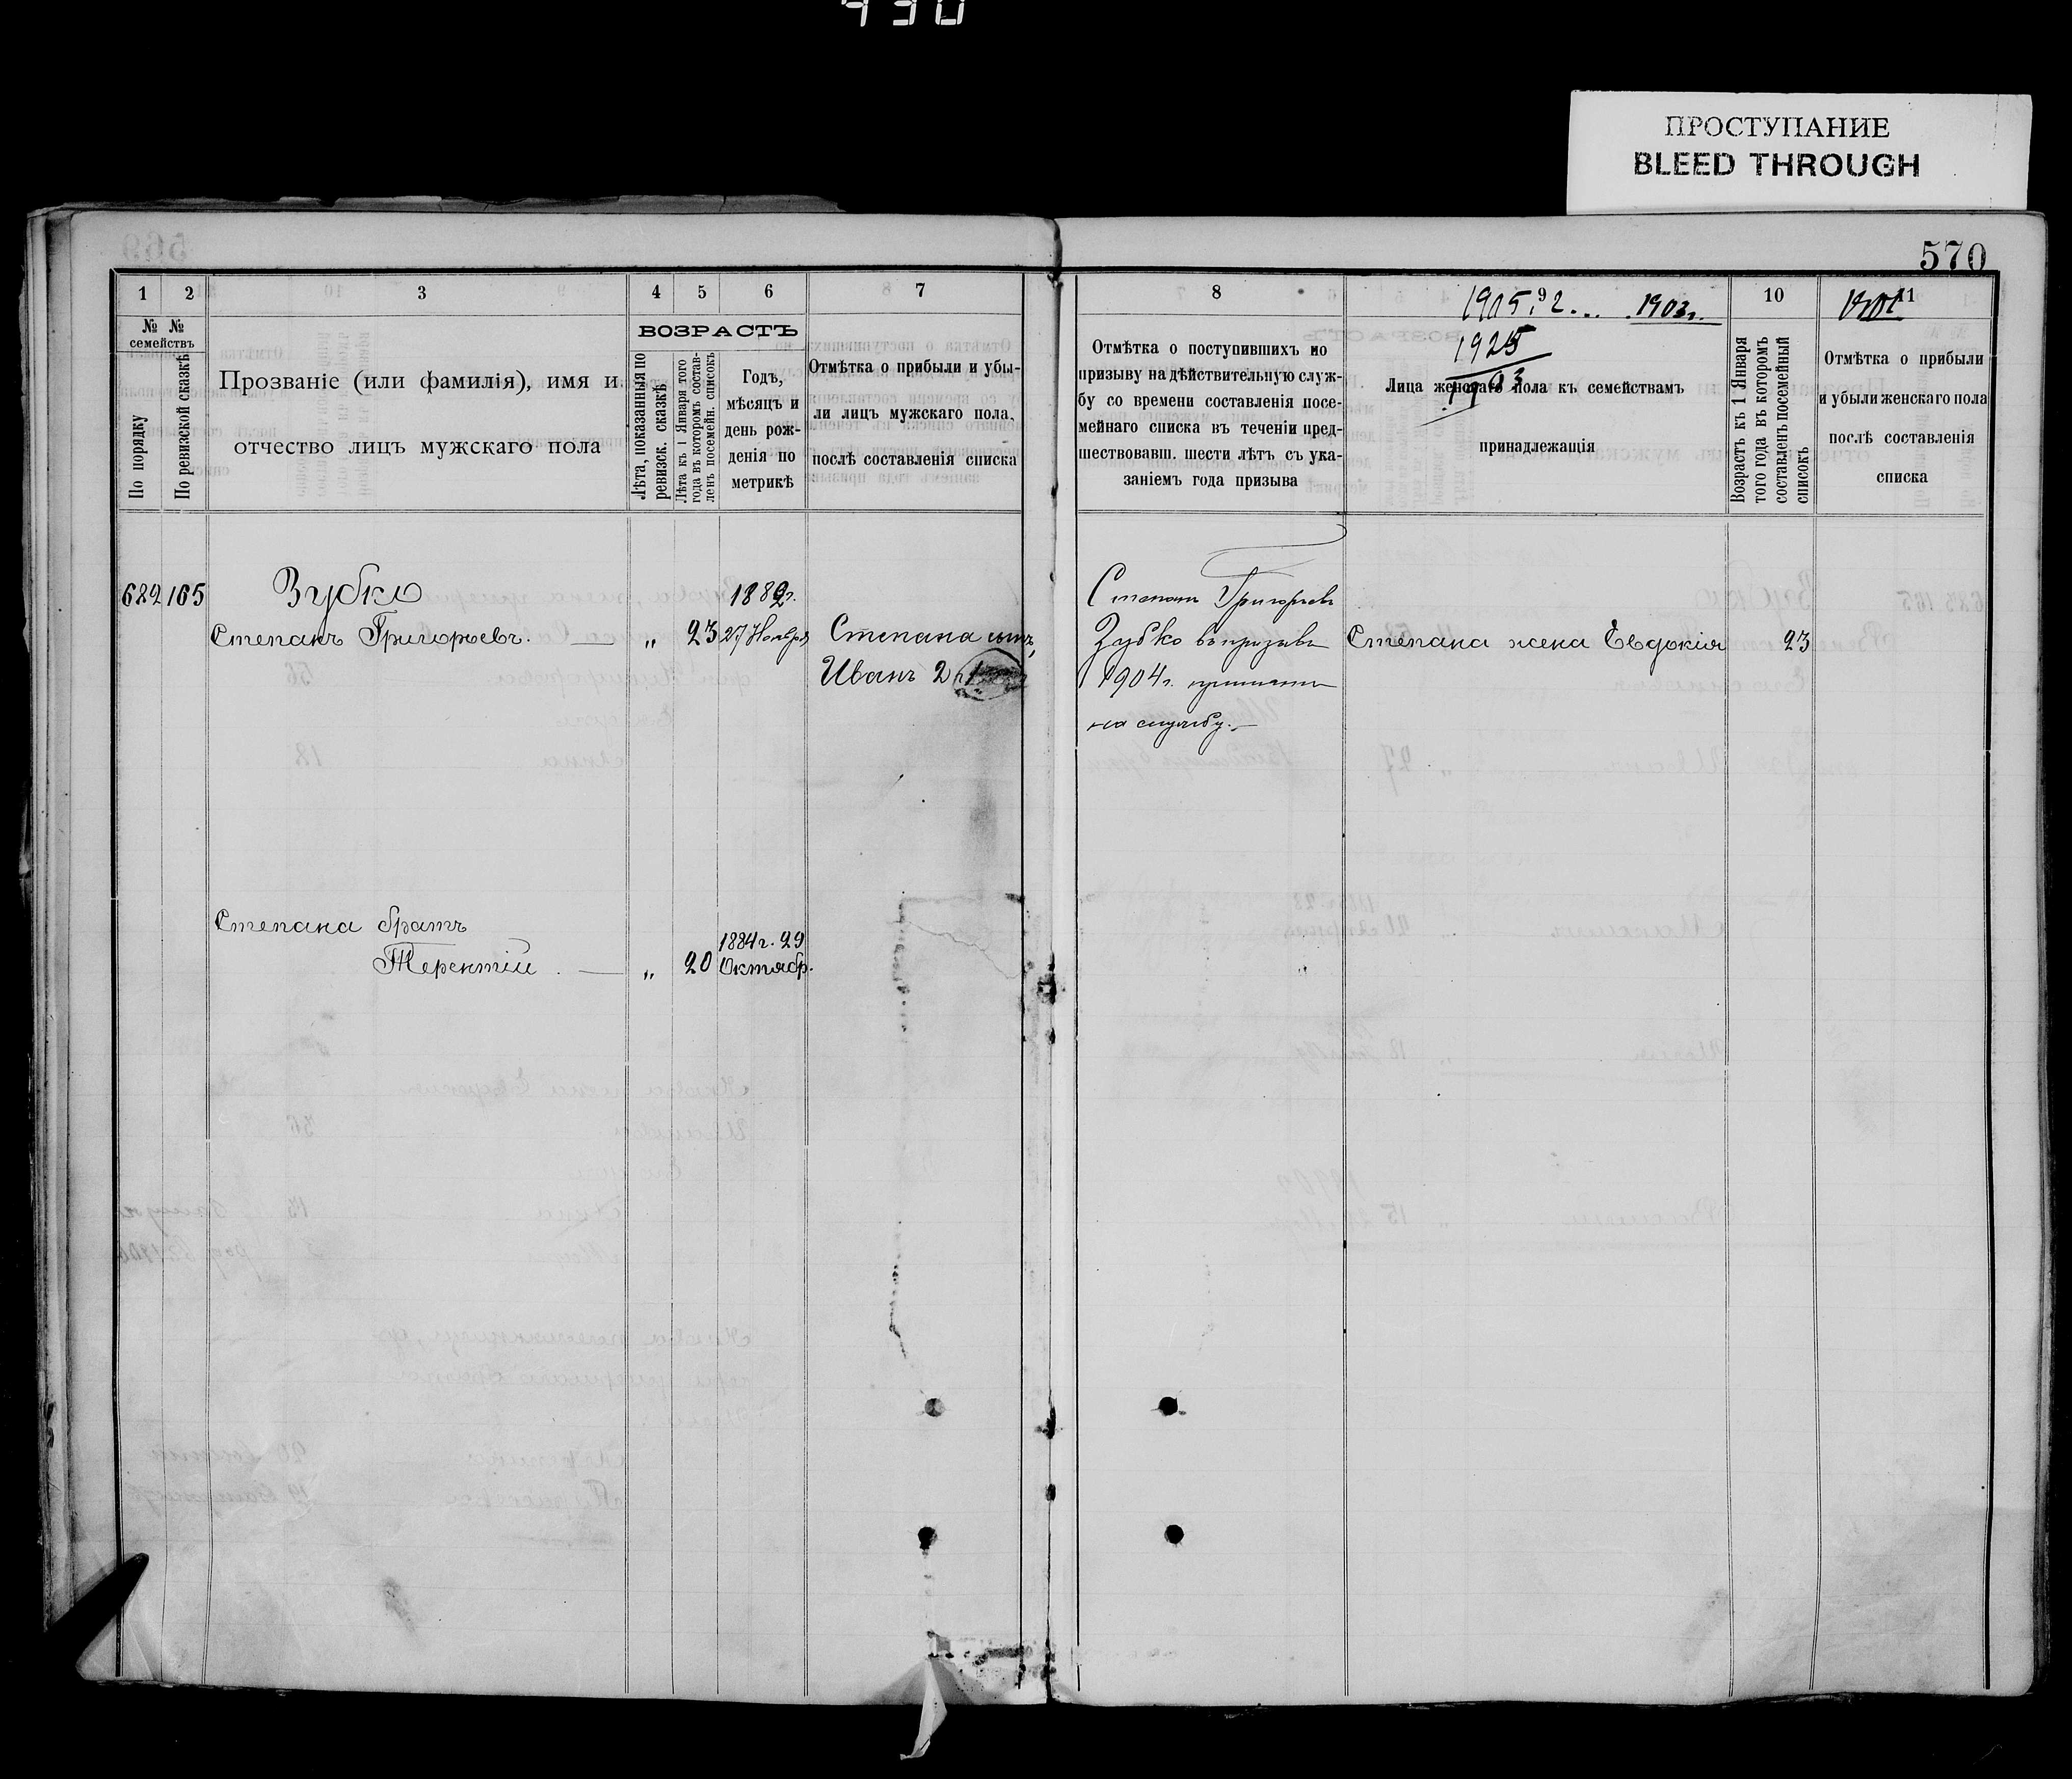 430
ПРОСТУПАНИЕ
BLEED THROUGH
570
1
2
3
4
5
6
7
8
9
10
11
1905 г. 1903 г.
1925
1903
1901
№ №
семействъ
По порядку
По ревизской сказкѣ
Прозваніе (или фамилія), имя и
отчество лицъ мужскаго пола
ВОЗРАСТЪ
Лѣта, показанныя по
ревизск. сказкѣ
Лѣта къ 1 Января того
года въ которомъ состав-
ленъ посемейн. списокъ
Годъ,
мѣсяцъ и
день рож-
денія по
метрикѣ
Отмѣтка о прибыли и убы-
ли лицъ мужскаго пола,
послѣ составленія списка
Отмѣтка о поступившихъ по
призыву на дѣйствительную служ-
бу со времени составленія посе-
мейнаго списка въ теченіи пред-
шествовавш. шести лѣтъ съ ука-
заніемъ года призыва
Лица женскаго пола къ семействамъ
принадлежащія
Возрастъ къ 1 Января
того года въ которомъ
составленъ посемейный
списокъ
Отмѣтка о прибыли
и убыли женскаго пола
послѣ составленія
списка
682 165 Зубко
Степанъ Григорьевъ. — „ 23
1882 г.
27 Ноября
Степана сынъ,
Иванъ 2
Степанъ Григорьевъ
Зубко въ призывъ
1904 г. принятъ
на службу. —
Степана жена Евдокія 23
Степана братъ
Терентій . — „ 20
1884 г. 29
Октябр.